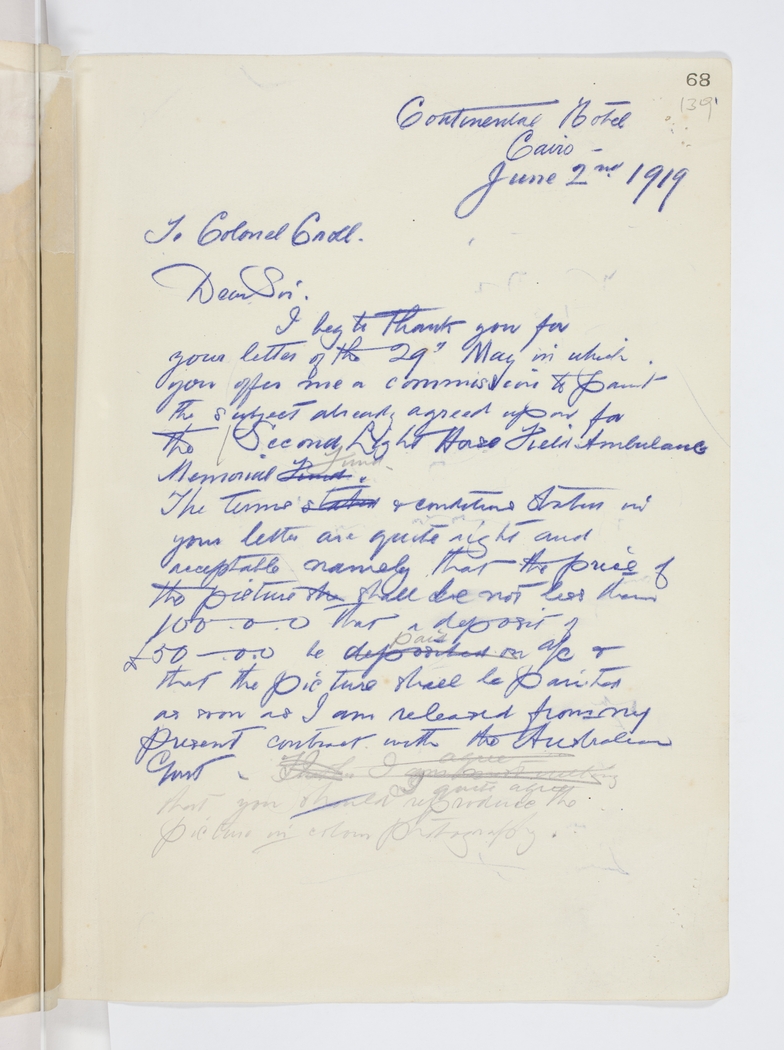 68
(139)
Continental Hotel
Cairo -
June 2nd 1919
To Colonel Croll.
Dear Sir.
I beg to thank you for
your letter of the 29th May in which
you offer me a commission to paint
the subject already agreed upon for
the Second Light Horse Field Ambulance
Memorial Fund. Fund.
The terms stated & conditions states in
your letter are quite right and
acceptable namely that the price of
the picture sha shall be not less than
100-0-0 that a deposit of
£50-0-0 be deposited on paid a/c &
that the picture shall be painted
as soon as I am released from my
present contract with the Australian
Govt - I agree
I quite agree
that you should reproduce the
picture in colour photography.